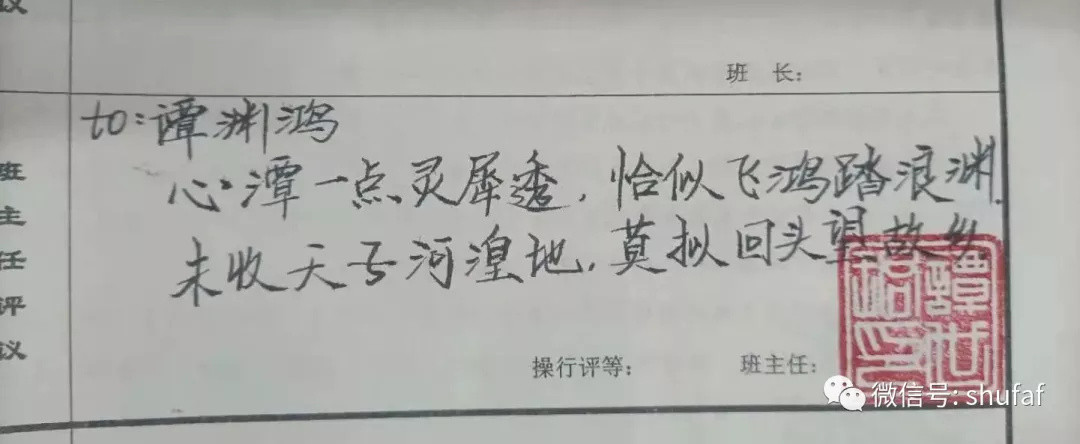 议
班 长：
to：谭渊鸿
心潭一点灵犀透，恰似飞鸿踏浪渊.
未收天子河湟地，莫拟回头望故乡
班主任评议
操行评等：
班主任：
微信号: shufaf